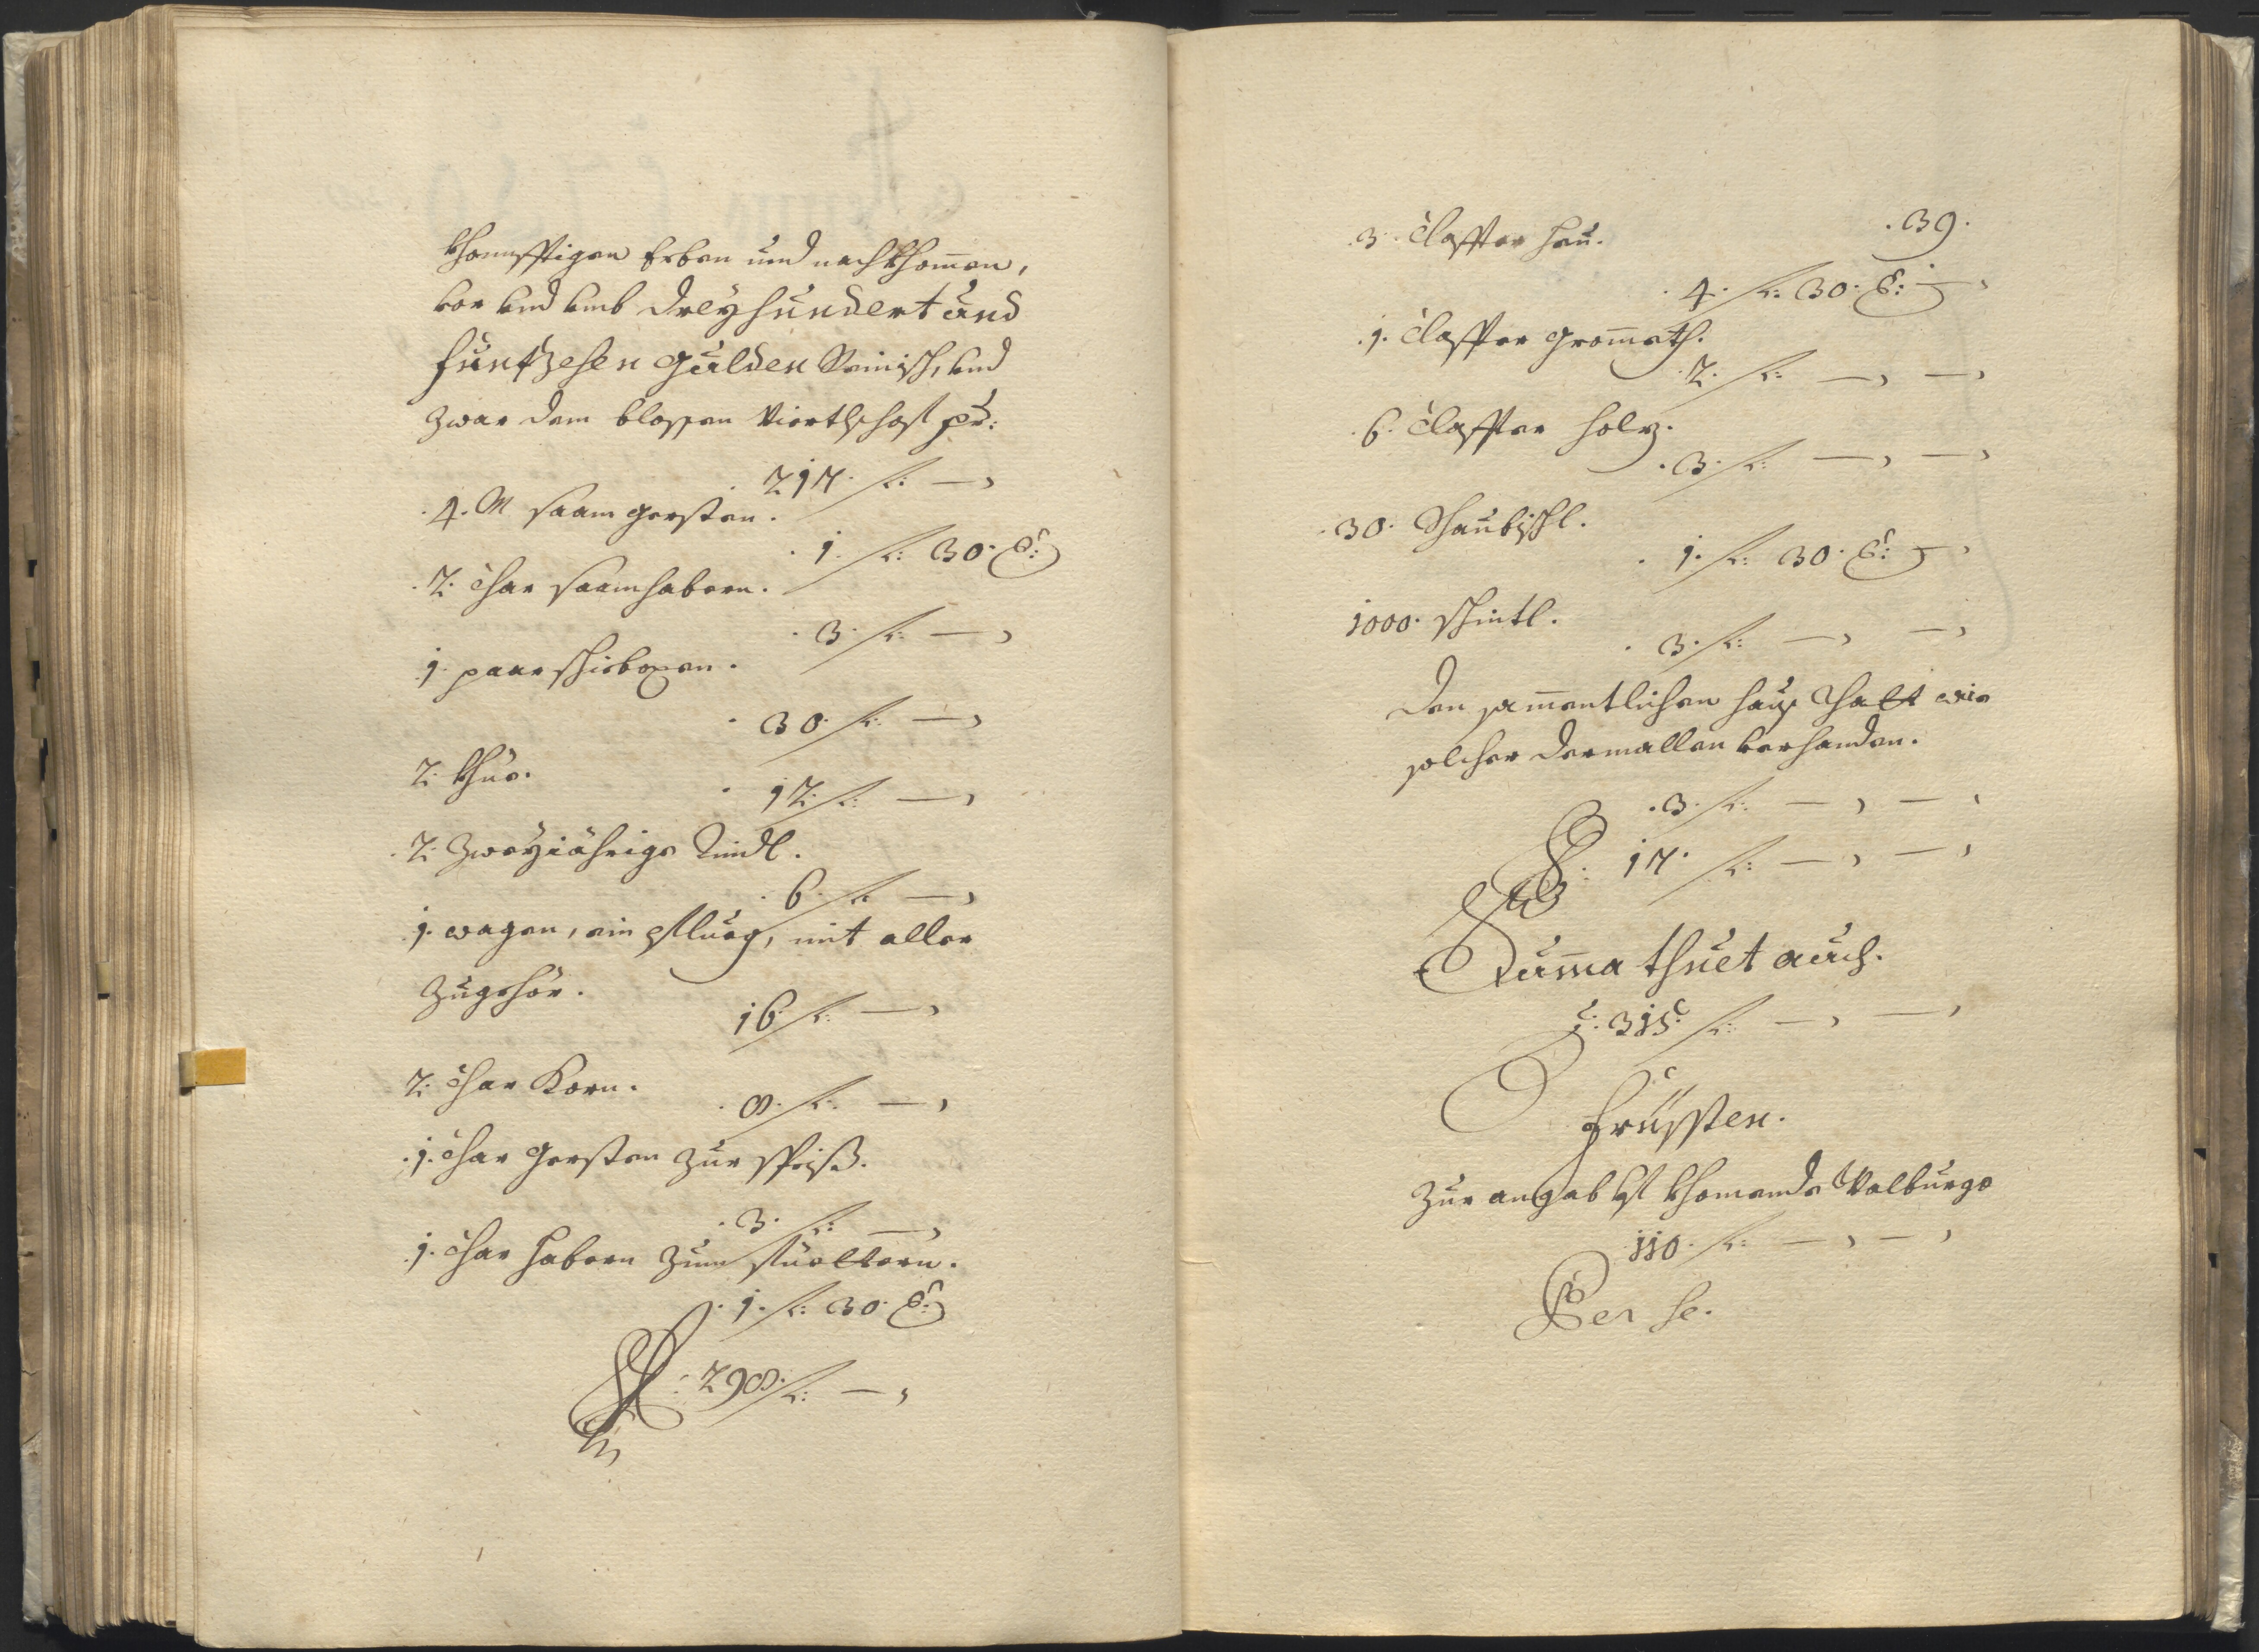 khonnfftigen Erben und nachkhom̄en,
vor und umb dreyhundert und
funfzehen gulden Reinisch, und
zwar dem blossen Viertlhof pr:
217. fl: —,
.4. M saam gersten.
.1. fl: 30. x:
.2. Char saamhabern.
.3. fl: —,
.1. paar schiboxen.
.30. fl: —,
2. khüe.
.12. fl: —,
.2. Zweyiährige Rindl.
.6. fl: —,
.1. wagen, ein pflueg, mit aller
Zugehör.
16. fl: —,
2. Char Korn.
.8. fl: —,
.1. Char Gersten zur speiß.
.3. fl: —,
.1. Char habern zum fuettern.
.1. fl: 30. x:
: 298. fl: —,
.39.
.3. Claffter heu.
.4. fl: 30. x: —,
.1. Claffter grom̄ath.
.2. fl: —, —,
.6. Claffter holz.
.3. fl: —, —,
.30. Schaubschl.
.1. fl: 30. x: —,
1000. schintl.
.3. fl: —, —,
den sam̄entlichen haus Rhatt wie
solcher dermallen verhanden.
.3. fl: —, —,
: 17. fl: —, —,
Sum̄a thuet auch.
: 315. fl: —, —,
Früssten.
Zur angab ist khomende Walburge
110. fl: —, —,
Per se.